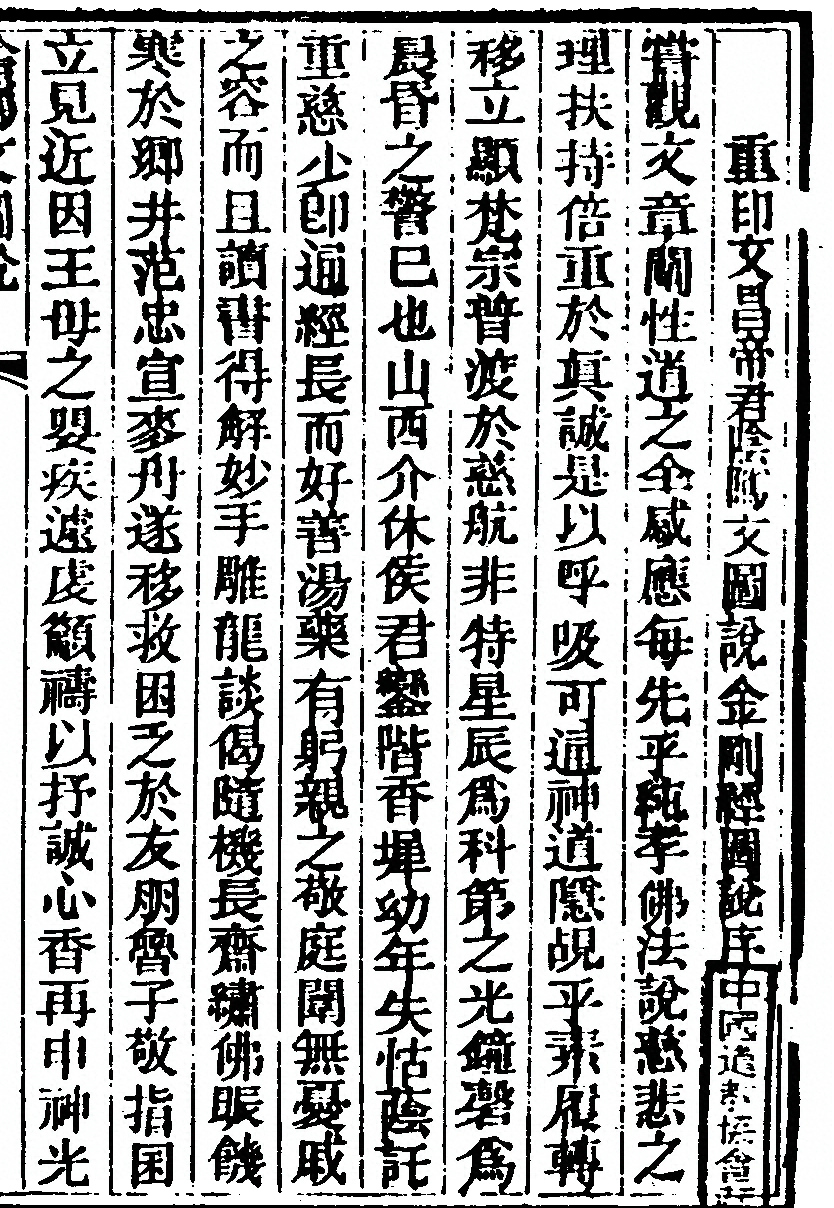 重印文昌帝君陰隲文圖說金剛經圖說序
中國道教協會
嘗觀文章關性道之全感應每先乎純孝佛法說慈悲之
理扶持倍重於真誠是以呼吸可通神道隱覘乎素履轉
移立顯梵宗普渡於慈航非特星辰爲科第之光鐘磬爲
晨昏之警已也山西介休侯君鑾階香墀幼年失怙蔭託
重慈少卽通經長而好善湯藥有躬親之敬庭闈無憂戚
之容而且讀書得解妙手雕龍談偈隨機長齋繡佛賑饑
寒於鄉井范忠宣麥舟遂移救困乏於友朋魯子敬指囷
立見近因王母之嬰疾遽虔籲禱以抒誠心香再申神光